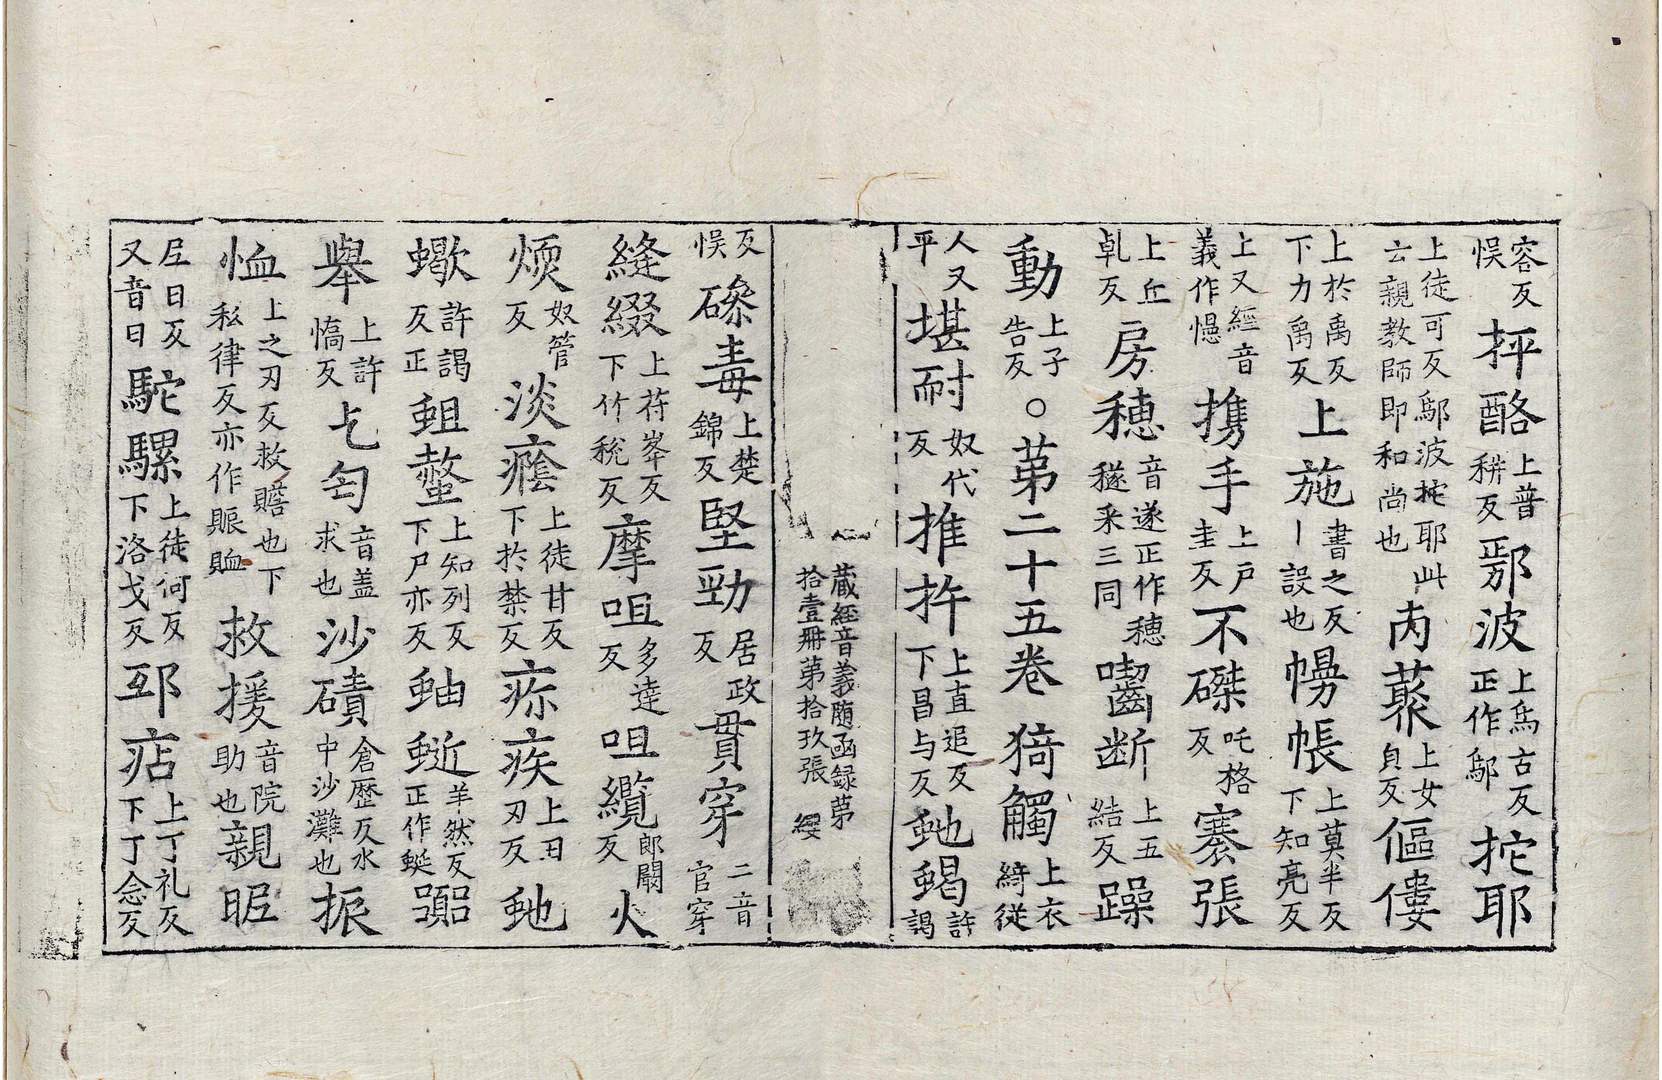 容反悞抨酪上普耕反鄔波正作鄔上烏古反拕耶
上徒可反鄔波拕耶此云親教師即和尚也芮藂上女貟反傴僂
上於禹反下力禹反上施書之反丨誤也幔帳上莫半反下知亮反
上又經音義作㨗攜手上戸圭反不磔吒格反褰張
上丘乹反房穗音遂正作穂䆃釆三同齧断上五結反躁
動上子告反○苐二十五卷 猗觸上衣綺従
人又平堪耐奴代反推杵上直追反下昌与反虵蝎許謁
藏經音義随函録苐拾壹冊苐拾玖張 纓
反悞磣毒上楚錦反堅勁居政反貫穿二音官穿
縫綴上苻峯反下竹稅反摩呾多達反呾纜郎闞反火
煗奴管反淡癊上徒甘反下於禁反疢疾上丑刃反虵
蠍許謁反正蛆螫上知列反下尸亦反蚰蜒羊然反正作蜒
舉上許憍反乞匄音盖求也沙磧倉歴反水中沙灘也振
恤上之刃反救贍也下私律反亦作賑賉救援音院助也親昵
尼日反又音日駞騾上徒何反下洛戈反邳痁上丁礼反下丁念反